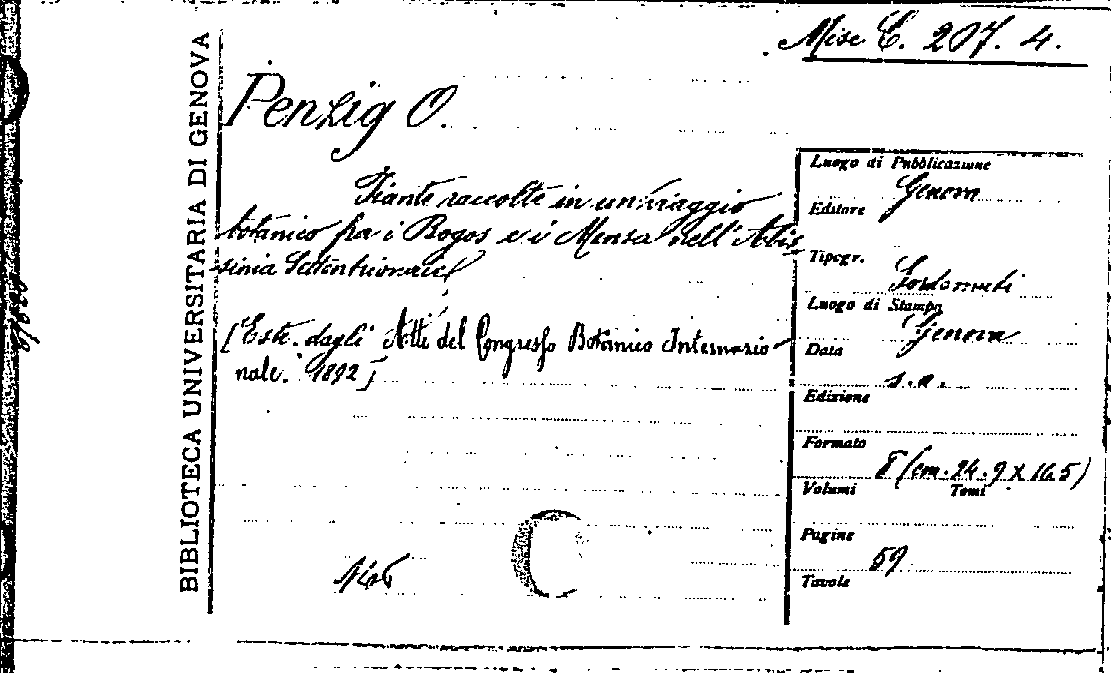 Misc C. 207. 4.
BIBLIOTECA UNIVERSITARIA DI GENOVA
Penzig O.
Piante raccolte in un viaggio
botanico fra i Bogos e i Mensa nell'Abis
sinia Settentrionale
[Estr. dagli Atti del Congresso Botanico Internazio-
nale. 1892]
Luogo di Pubblicazione
Genova
Editore
Tipogr.
Sordomuti
Luogo di Stampa
Genova
Data
s. a.
Edizione
Formato
8 (cm. 24.9 x 16.5)
Volumi Tomi
Pagine
59
Tavole